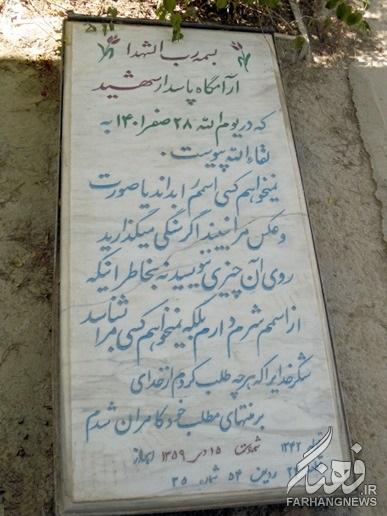 بسمه رب الشهدا
آرامگاه پاسدار شهید
که در یوم الله ۲۸ صفر ۱۴۰۱ به
لقاءالله پیوست.
نمیخواهم کسی اسم را بداند یا صورت
و عکس مرا ببیند اگر سنگی میگذارید
روی آن چیزی ننویسید نه بخاطر اینکه
از اسمم شرم دارم بلکه نمیخواهم کسی مرا بشناسد
شکر خدایرا که هر چه طلب کردم از خدای
بر منتهای مطلب خود کامران شدم
تولد ۱۳۴۲ شهادت ۱۵ دی ۱۳۵۹ اهواز
قطعه ۲۴ ردیف ۵۴ شماره ۳۵
فرهنگ
FARHANGNEWS